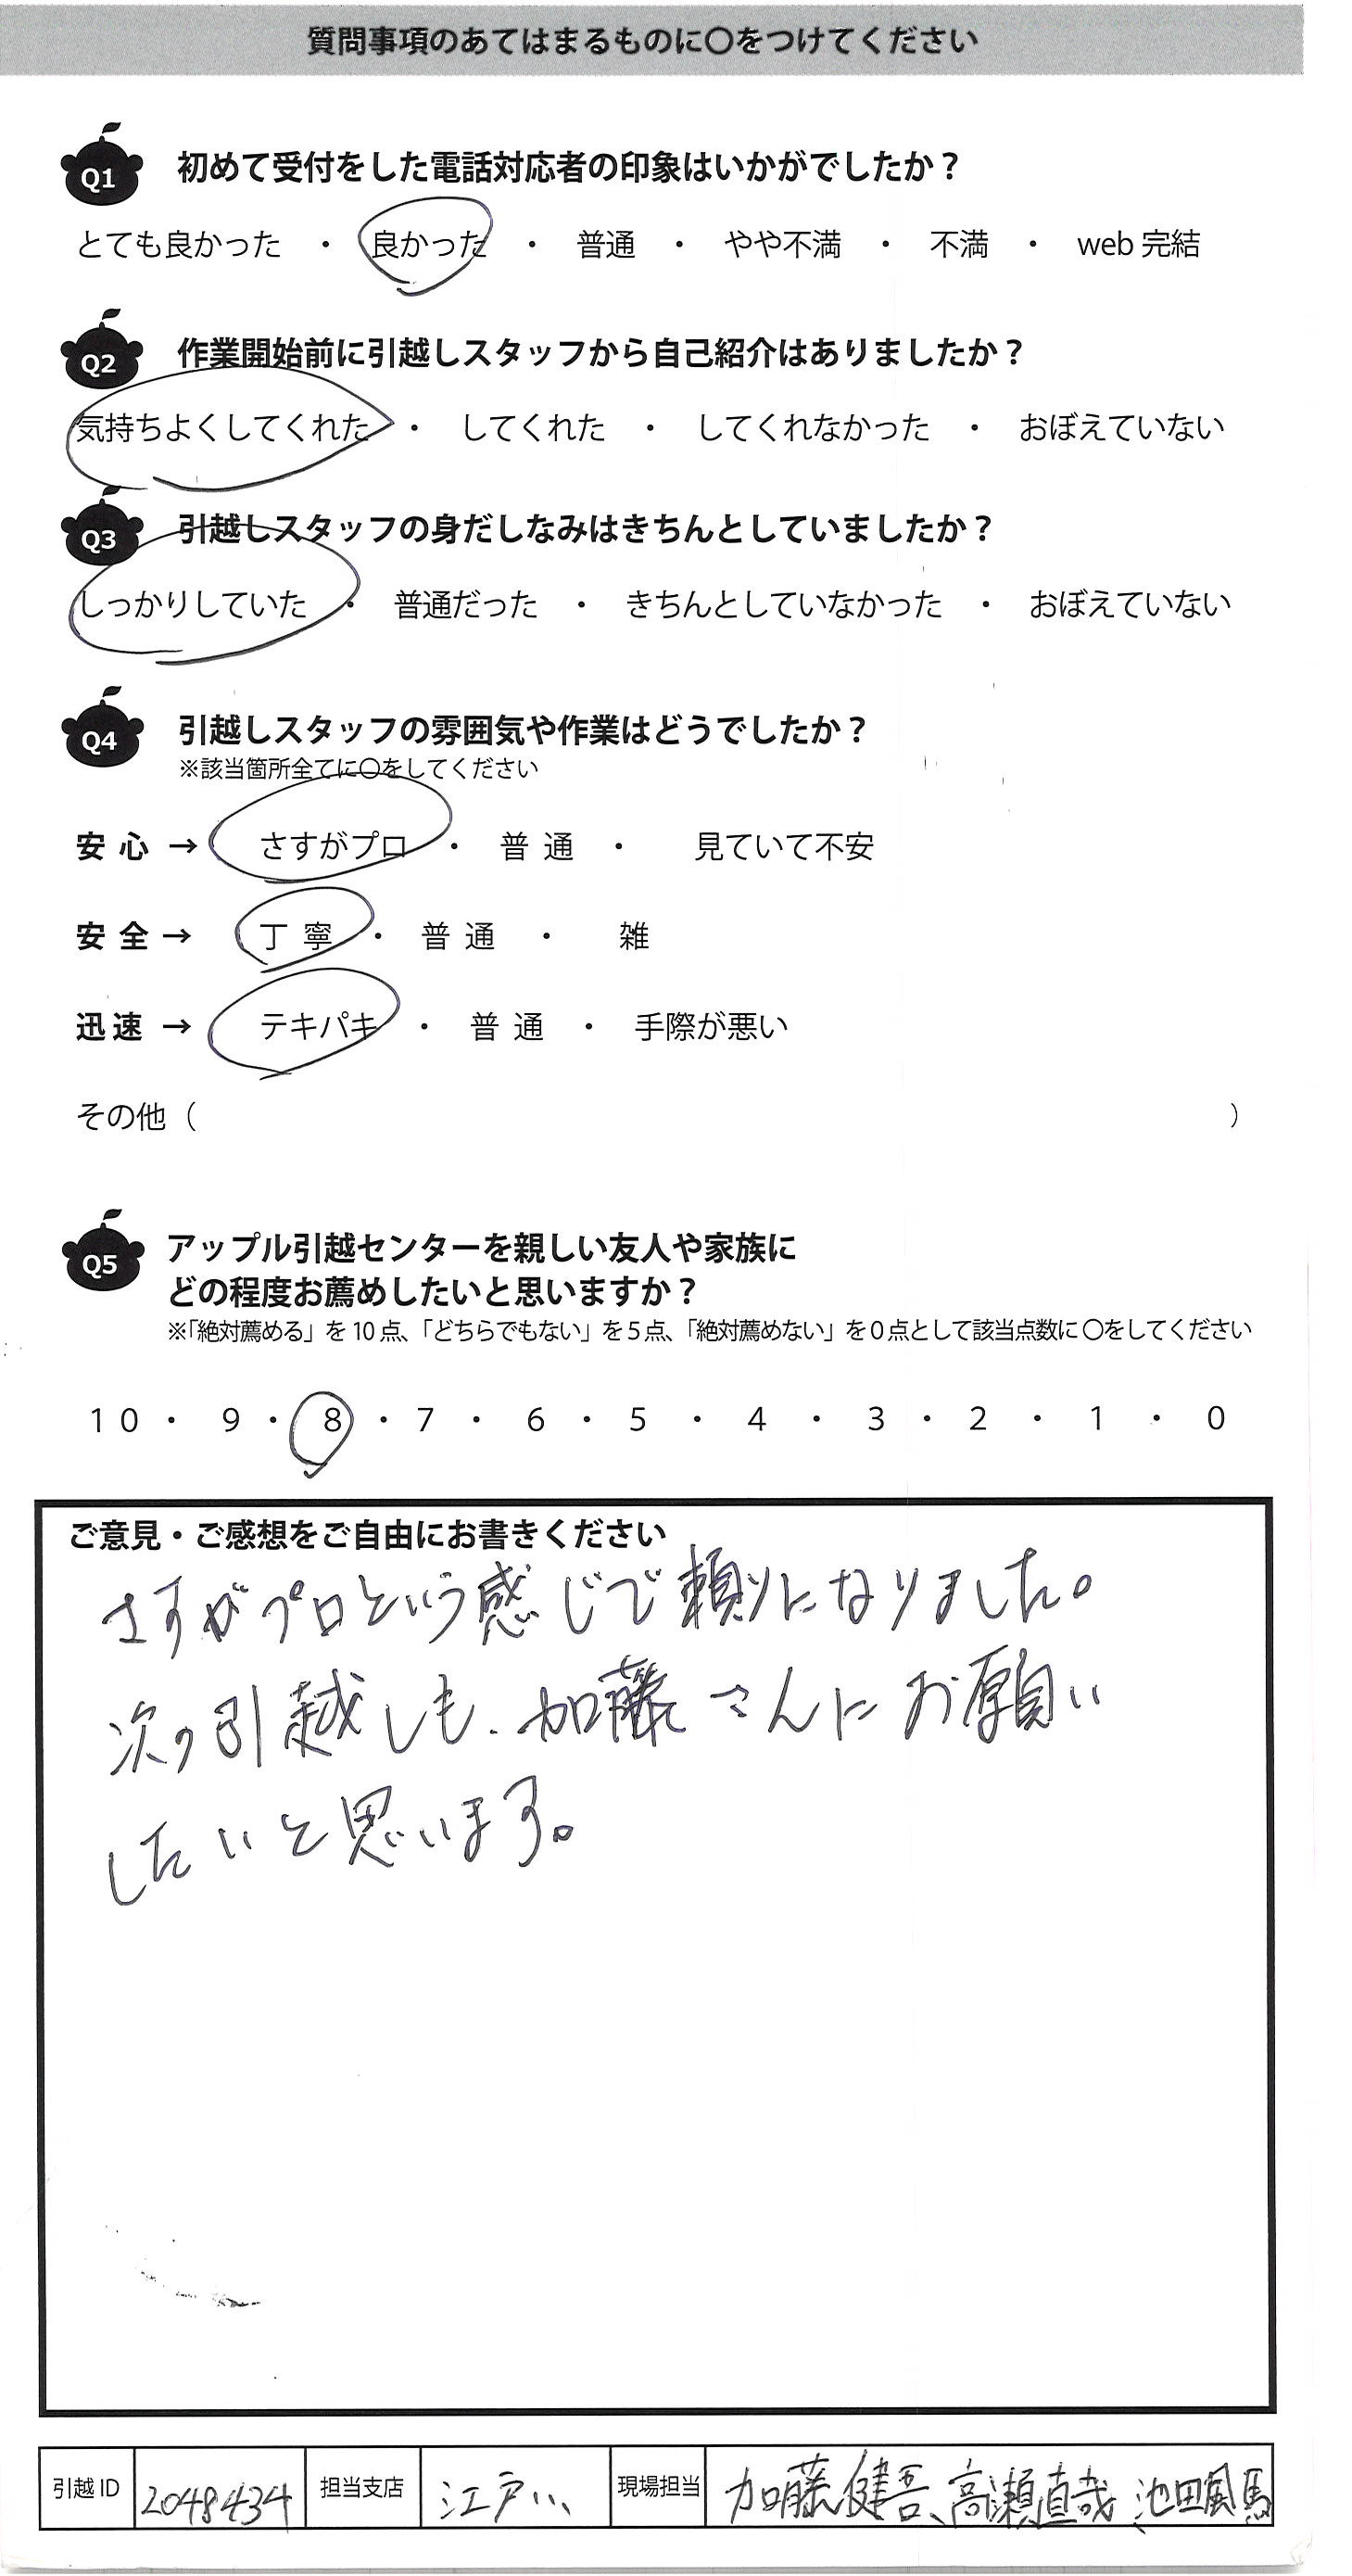 質問事項のあてはまるものに〇をつけてください
Q1 初めて受付をした電話対応者の印象はいかがでしたか？
とても良かった ・ 良かった ・ 普通 ・ やや不満 ・ 不満 ・ web 完結
Q2 作業開始前に引越しスタッフから自己紹介はありましたか？
気持ちよくしてくれた ・ してくれた ・ してくれなかった ・ おぼえていない
Q3 引越しスタッフの身だしなみはきちんとしていましたか？
しっかりしていた ・ 普通だった ・ きちんとしていなかった ・ おぼえていない
Q4 引越しスタッフの雰囲気や作業はどうでしたか？
※該当箇所全てに〇をしてください
安心 → さすがプロ ・ 普通 ・ 見ていて不安
安全 → 丁寧 ・ 普通 ・ 雑
迅速 → テキパキ ・ 普通 ・ 手際が悪い
その他（ ）
Q5 アップル引越センターを親しい友人や家族に
どの程度お薦めしたいと思いますか？
※「絶対薦める」を10点、「どちらでもない」を5点、「絶対薦めない」を0点として該当点数に〇をしてください
10 ・ 9 ・ 8 ・ 7 ・ 6 ・ 5 ・ 4 ・ 3 ・ 2 ・ 1 ・ 0
ご意見・ご感想をご自由にお書きください
さすがプロという感じで頼りになりました。
次の引越しも、加藤さんにお願い
したいと思います。
引越ID 2048434 担当支店 江戸川 現場担当 加藤健吾、高瀬直哉、池田颯馬